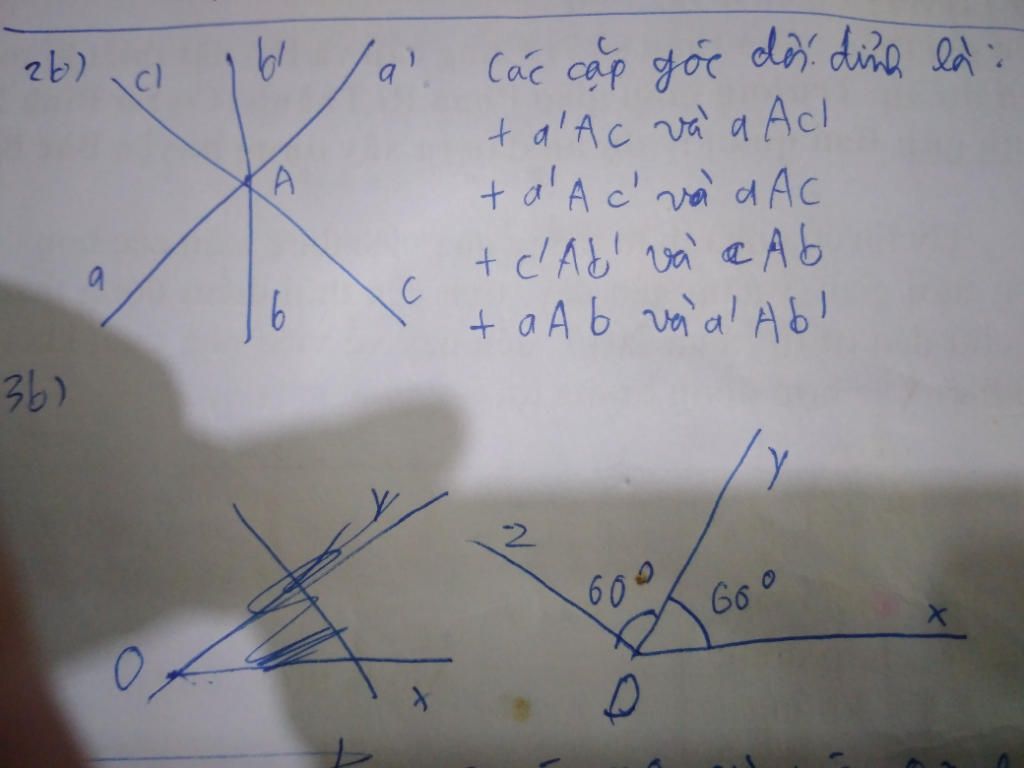 2b)
c'
b'
a'
A
a
b
c
Các cặp góc đối đỉnh là:
+ a'Ac và aAc'
+ a'Ac' và aAc
+ c'Ab' và cAb
+ aAb và a'Ab'
3b)
y
O
x
z
y
60°
60°
x
O